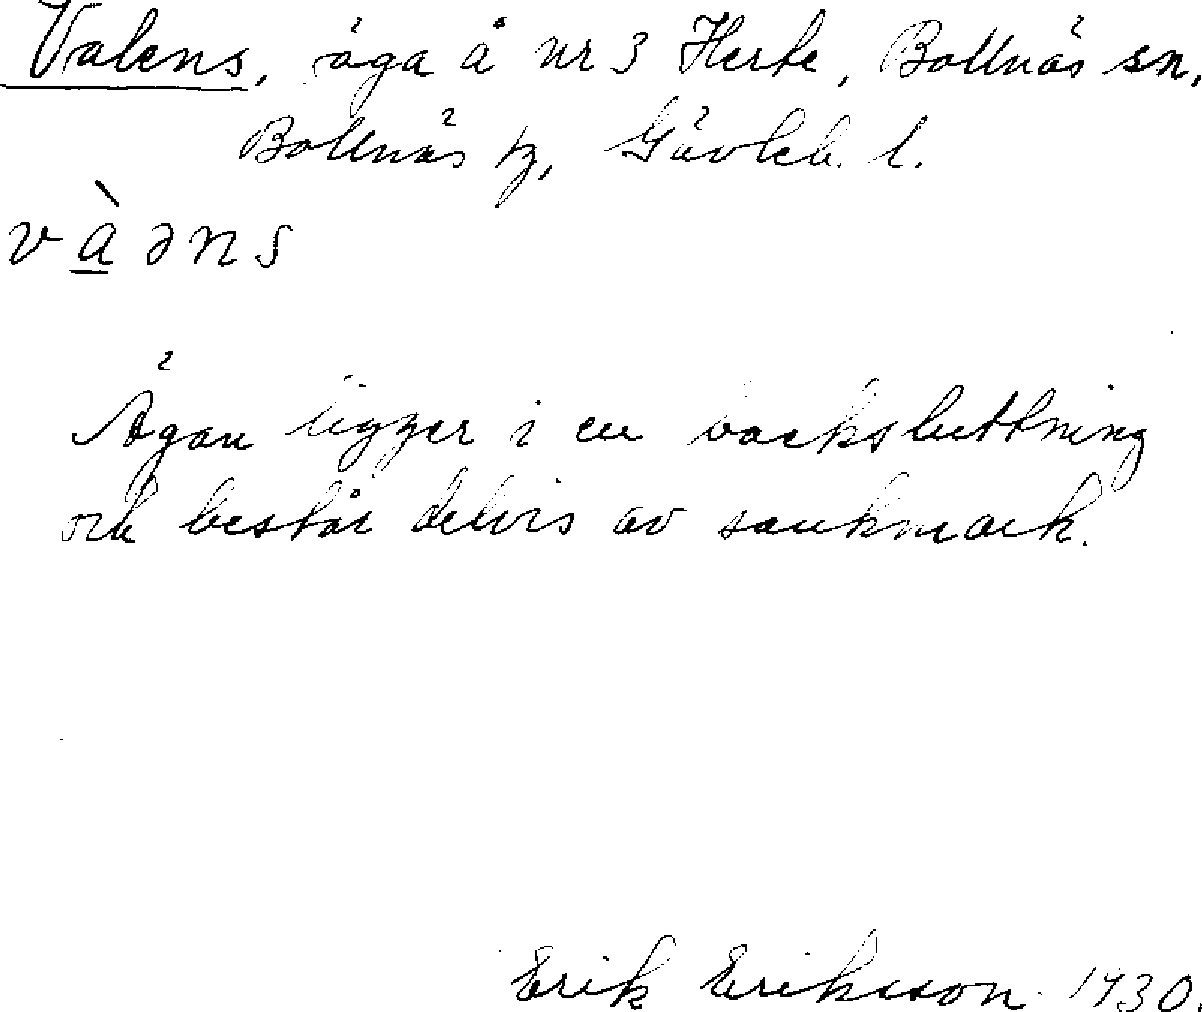 Valens, äga å nr 3 Herte, Bollnäs sn,
Bollnäs tg, Gävleb. l.
v à ə n s
Ägan ligger i en backsluttning
och består delvis av sankmark.
Erik Eriksson 1930.